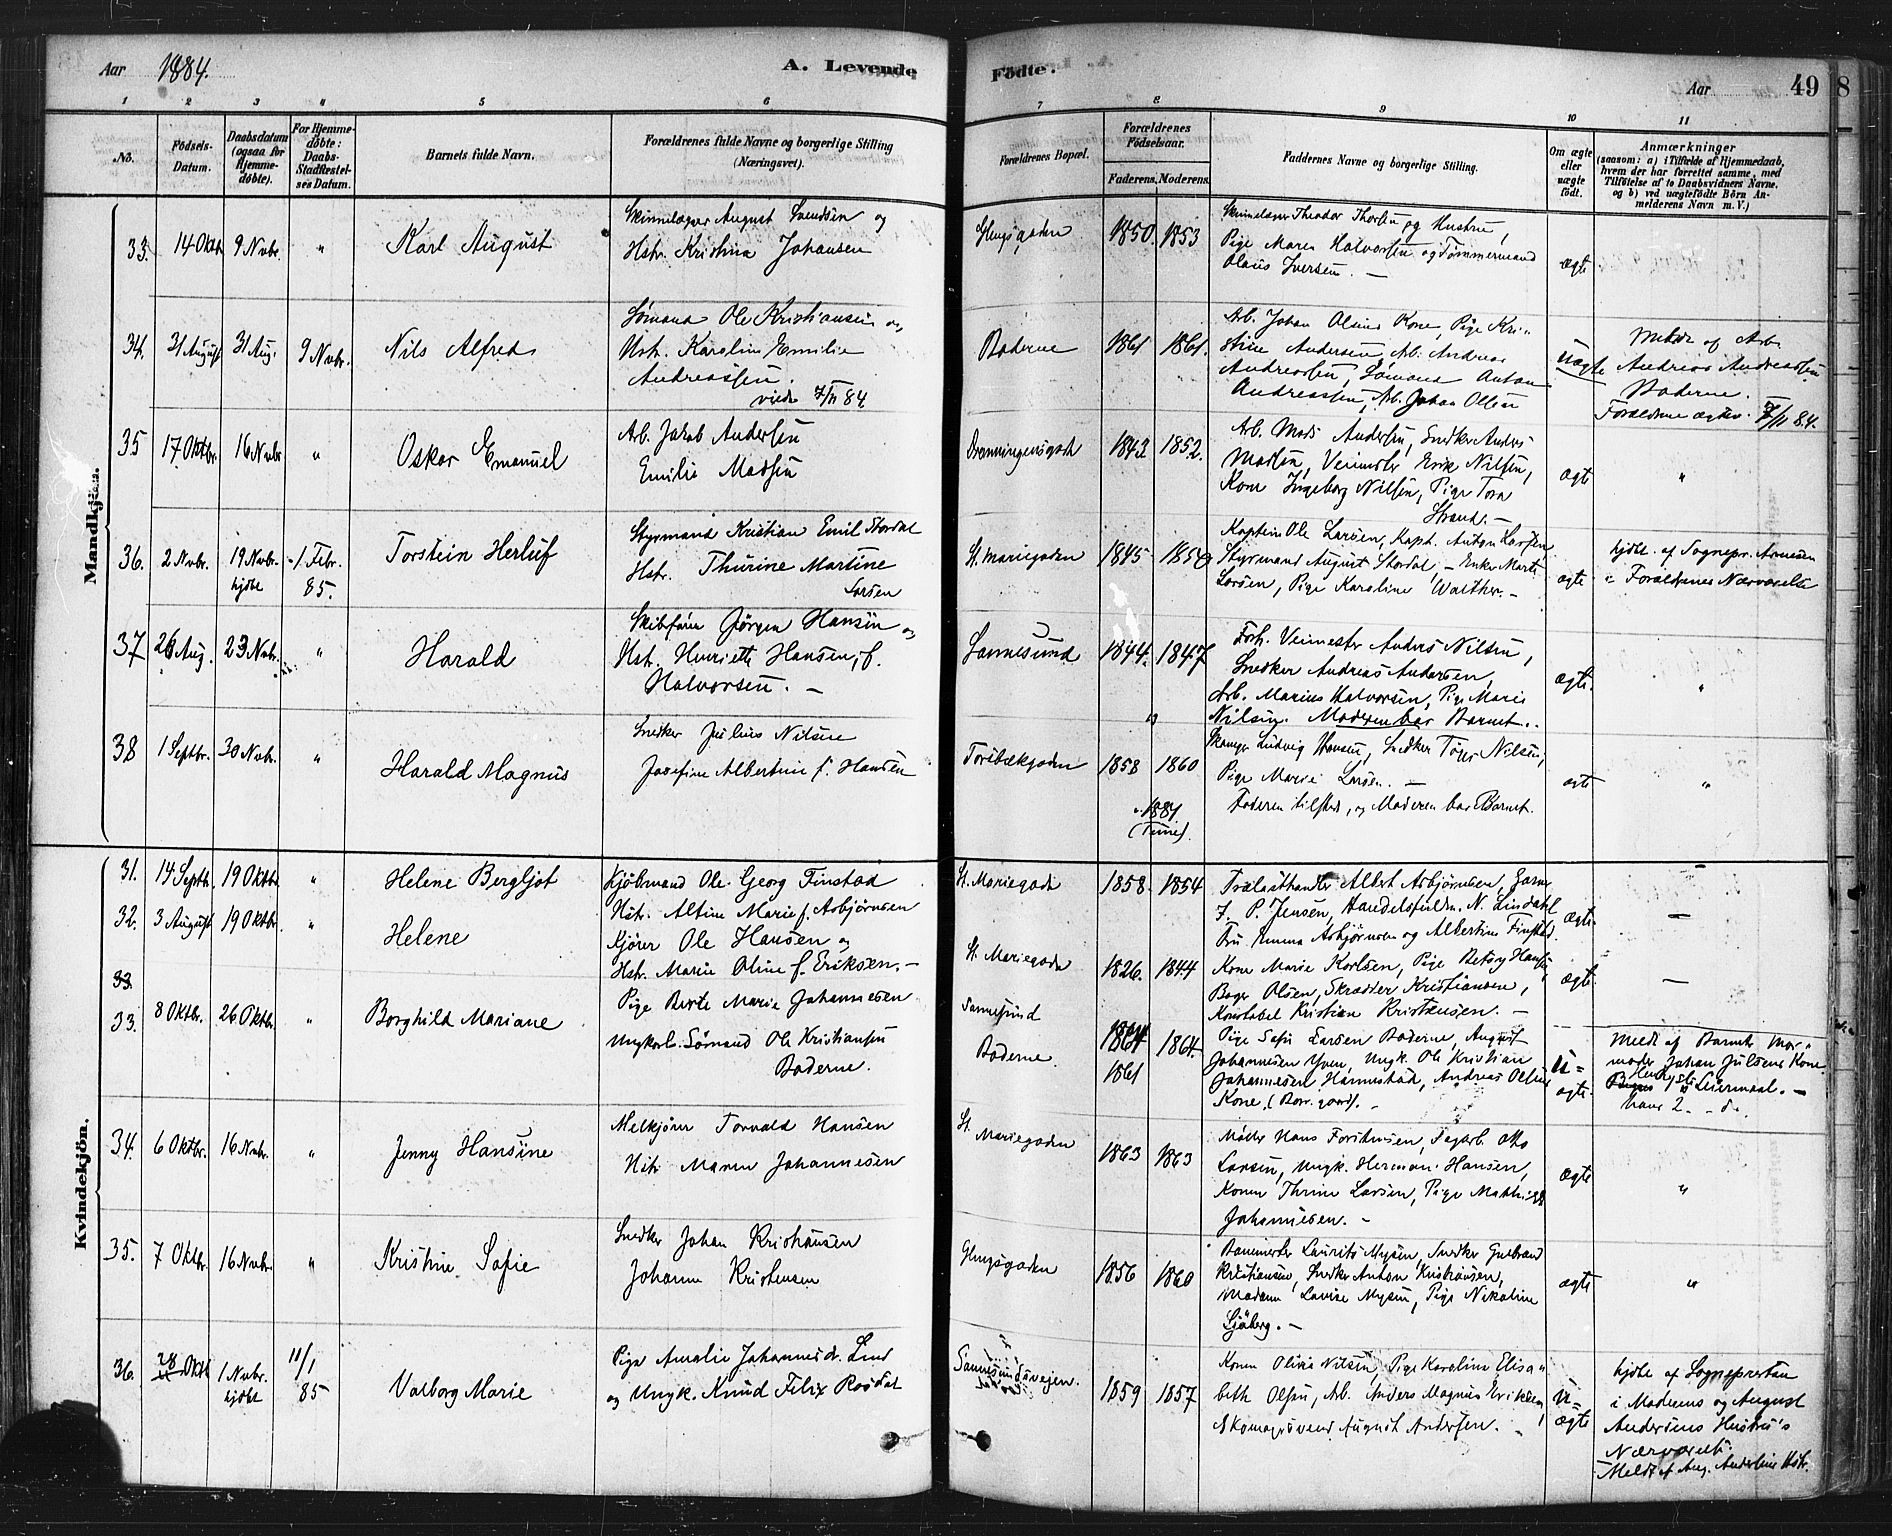 Aar 1884.
A. Levende Fødte.
Aar
49
8
1
2
3
4
5
6
7
8
9
10
11
No.
Fødsels-
Datum.
Daabsdatum
(ogsaa for
Hjemme-
døbte).
For Hjemme-
døbte:
Daabs-
Stadfæstel-
ses Datum.
Barnets fulde Navn.
Forældrenes fulde Navne og borgerlige Stilling
(Næringsvei).
Forældrenes Bopæl.
Forældrenes
Fødselsaar.
Faderens.
Moderens.
Faddernes Navne og borgerlige Stilling.
Om ægte
eller
uægte
født.
Anmærkninger
(saasom: a) i Tilfælde af Hjemmedaab,
hvem der har forrettet samme, med
Tilføielse af to Daabsvidners Navne,
og b) ved uægtefødte Børn An-
melderens Navn m. V.)
Mandkjön.
33. 14 Oktbr. 9 Nvbr. " Karl August
August Svendsen og
Hstr. Kristina Johansen
Glengsgaden 1850. 1853
Theodor Thorsen og Hustru,
Pige Maren Halvorsen og Tømmermand
Olaus Iversen. —
ægte
34. 31 August 31 Aug. 9 Nvbr. Nils Alfred
Sømand Ole Kristiansen og
Hstr. Karoline Emilie
Andreassen.
viede 7/11 84
Boderne 1861 1861.
Arb. Johan Olsens Kone, Pige Kri-
stine Andersen, Arb. Andreas
Andreassen, Sømand Anton
Andreassen, Arb. Johan Olsen
uægte
Meldt af Arb.
Andreas Andreassen
Boderne.
Forældrene ægtev. 7/11 84.
35 17 Oktbr. 16 Nvbr " Oskar Emanuel
Arb. Jakob Andersen
Emilie Madsen
Dronningensgade 1843 1852.
Arb. Mads Andersen, Snedker Anders
Madsen, Veimester Erik Nilsen,
Kone Ingeborg Nilsen, Pige Tora
Strand. —
ægte "
36. 2 Nvbr. 19 Nvbr. 1 Febr.
hjdbt 85.
Torstein Herluf
Styrmand Kristian Emil Stordal
Hstr. Thurine Martine
Larsen
St. Mariegaden 1845 1850
Kaptein Ole Larsen, Kapt. Anton Larsen
Styrmand August Stordal — Enke Marte
Larsen, Pige Karoline Walther. —
ægte
hjdbt. af Sognepr. Arnesen
i Forældrenes Nærværelse
37 26 Aug. 23 Nvbr. " Harald
Skibsfører Jørgen Hansen og
Hst. Henriette Hansen, f.
Halvorsen. —
Sannesund 1844. 1847
Forh. Veimester Anders Nilsen,
Snedker Andreas Andersen,
Arb. Marius Halvorsen, Pige Marie
Nilsen. Moderen bar Barnet.
ægte. "
38 1 Septbr. 30 Nvbr. " Harald Magnus
Snedker Julius Nilsen
Josefine Albertine f. Hansen
Torsbækgaden 1858 1860
1881
(Tune).
Ludvig Hansen, Snedker Tøger Nilsen,
Pige Marie Larsen. —
Faderen tilsted, og Moderen bar Barnet.
ægte "
Kvindekjön.
31. 14 Septbr. 19 Oktbr. " Helene Bergljot
Kjøbmand Ole Georg Finstad
Hstr. Altine Marie f. Asbjørnsen
St. Mariegade 1858. 1854
Trælasthandler Albert Asbjørnsen, Garver
J. P. Jensen, Handelsfuldm. N. Lindahl
Fru Emma Asbjørnsen og Albertine Finstad.
ægte. —
32. 3 August 19 Oktbr. " Helene
Kjører Ole Hansen og
Hstr. Marie Oline f. Eriksen. —
St. Mariegade 1826. 1844
Kone Marie Karlsen, Pige Betsy Hansen
Bager Olsen, Skrædder Kristiansen,
Konstabel Kristian Kristensen. —
ægte. —
33
33. 8 Oktbr. 26 Oktbr. " Borghild Mariane
Pige Berte Marie Johannesen
Ungkarl Sømand Ole Kristiansen
Boderne.
Sannesund
Boderne 1861 1864.
Pige Sofie Larsen Boderne, August
Johannesen Yven, Ungk. Ole Kristian
Johannesen Hannestad, Andreas Olsens
Kone, (Borrgaard). —
u=
ægte.
Meldt af Barnets Mor-
moder Johan Julsens Kone.
Hendes 1ste Leiermaal. —
hans 2. - d.
34. 6 Oktbr. 16 Nvbr. " Jenny Hansine
Melkjører Torvald Hansen
Hstr. Maren Johannesen
St. Mariegaden 1863 1863
Møller Hans Forstensen, Fagarb. Otto
Larsen, Ungk. Herman Hansen,
Konen Thrine Larsen, Pige Mathilde
Johannesen. —
ægte "
35. 7 Oktbr. 16 Nvbr. " Kristine Sofie
Snedker Johan Kristiansen
Johanne Kristensen
Glengsgaden 1856 1860
Laurits Mysen, Snedker Gulbrand
Kristiansen, Snedker Anton Kristiansen,
Madam Lovise Mysen, Pige Nikoline
Sjøberg. —
ægte "
36. 28 Oktbr 1 Nvbr. 11/1
hjdbt 85
Valborg Marie
Pige Amalie Johannesdr. Lund
og Ungk. Knud Felix Rosdal
Sannesundsveien. 1859 1857
Konen Olivia Nilsen, Pige Karoline Elisa-
beth Olsen, Arb. Anders Magnus Eriksen,
Skomagersvend August Andersen. —
u=
ægte
hjdbt af Sognepresten
i Moderens og August
Andersens Hustru's
Nærværelse.
Meldt af Aug. Andersens Hstr.